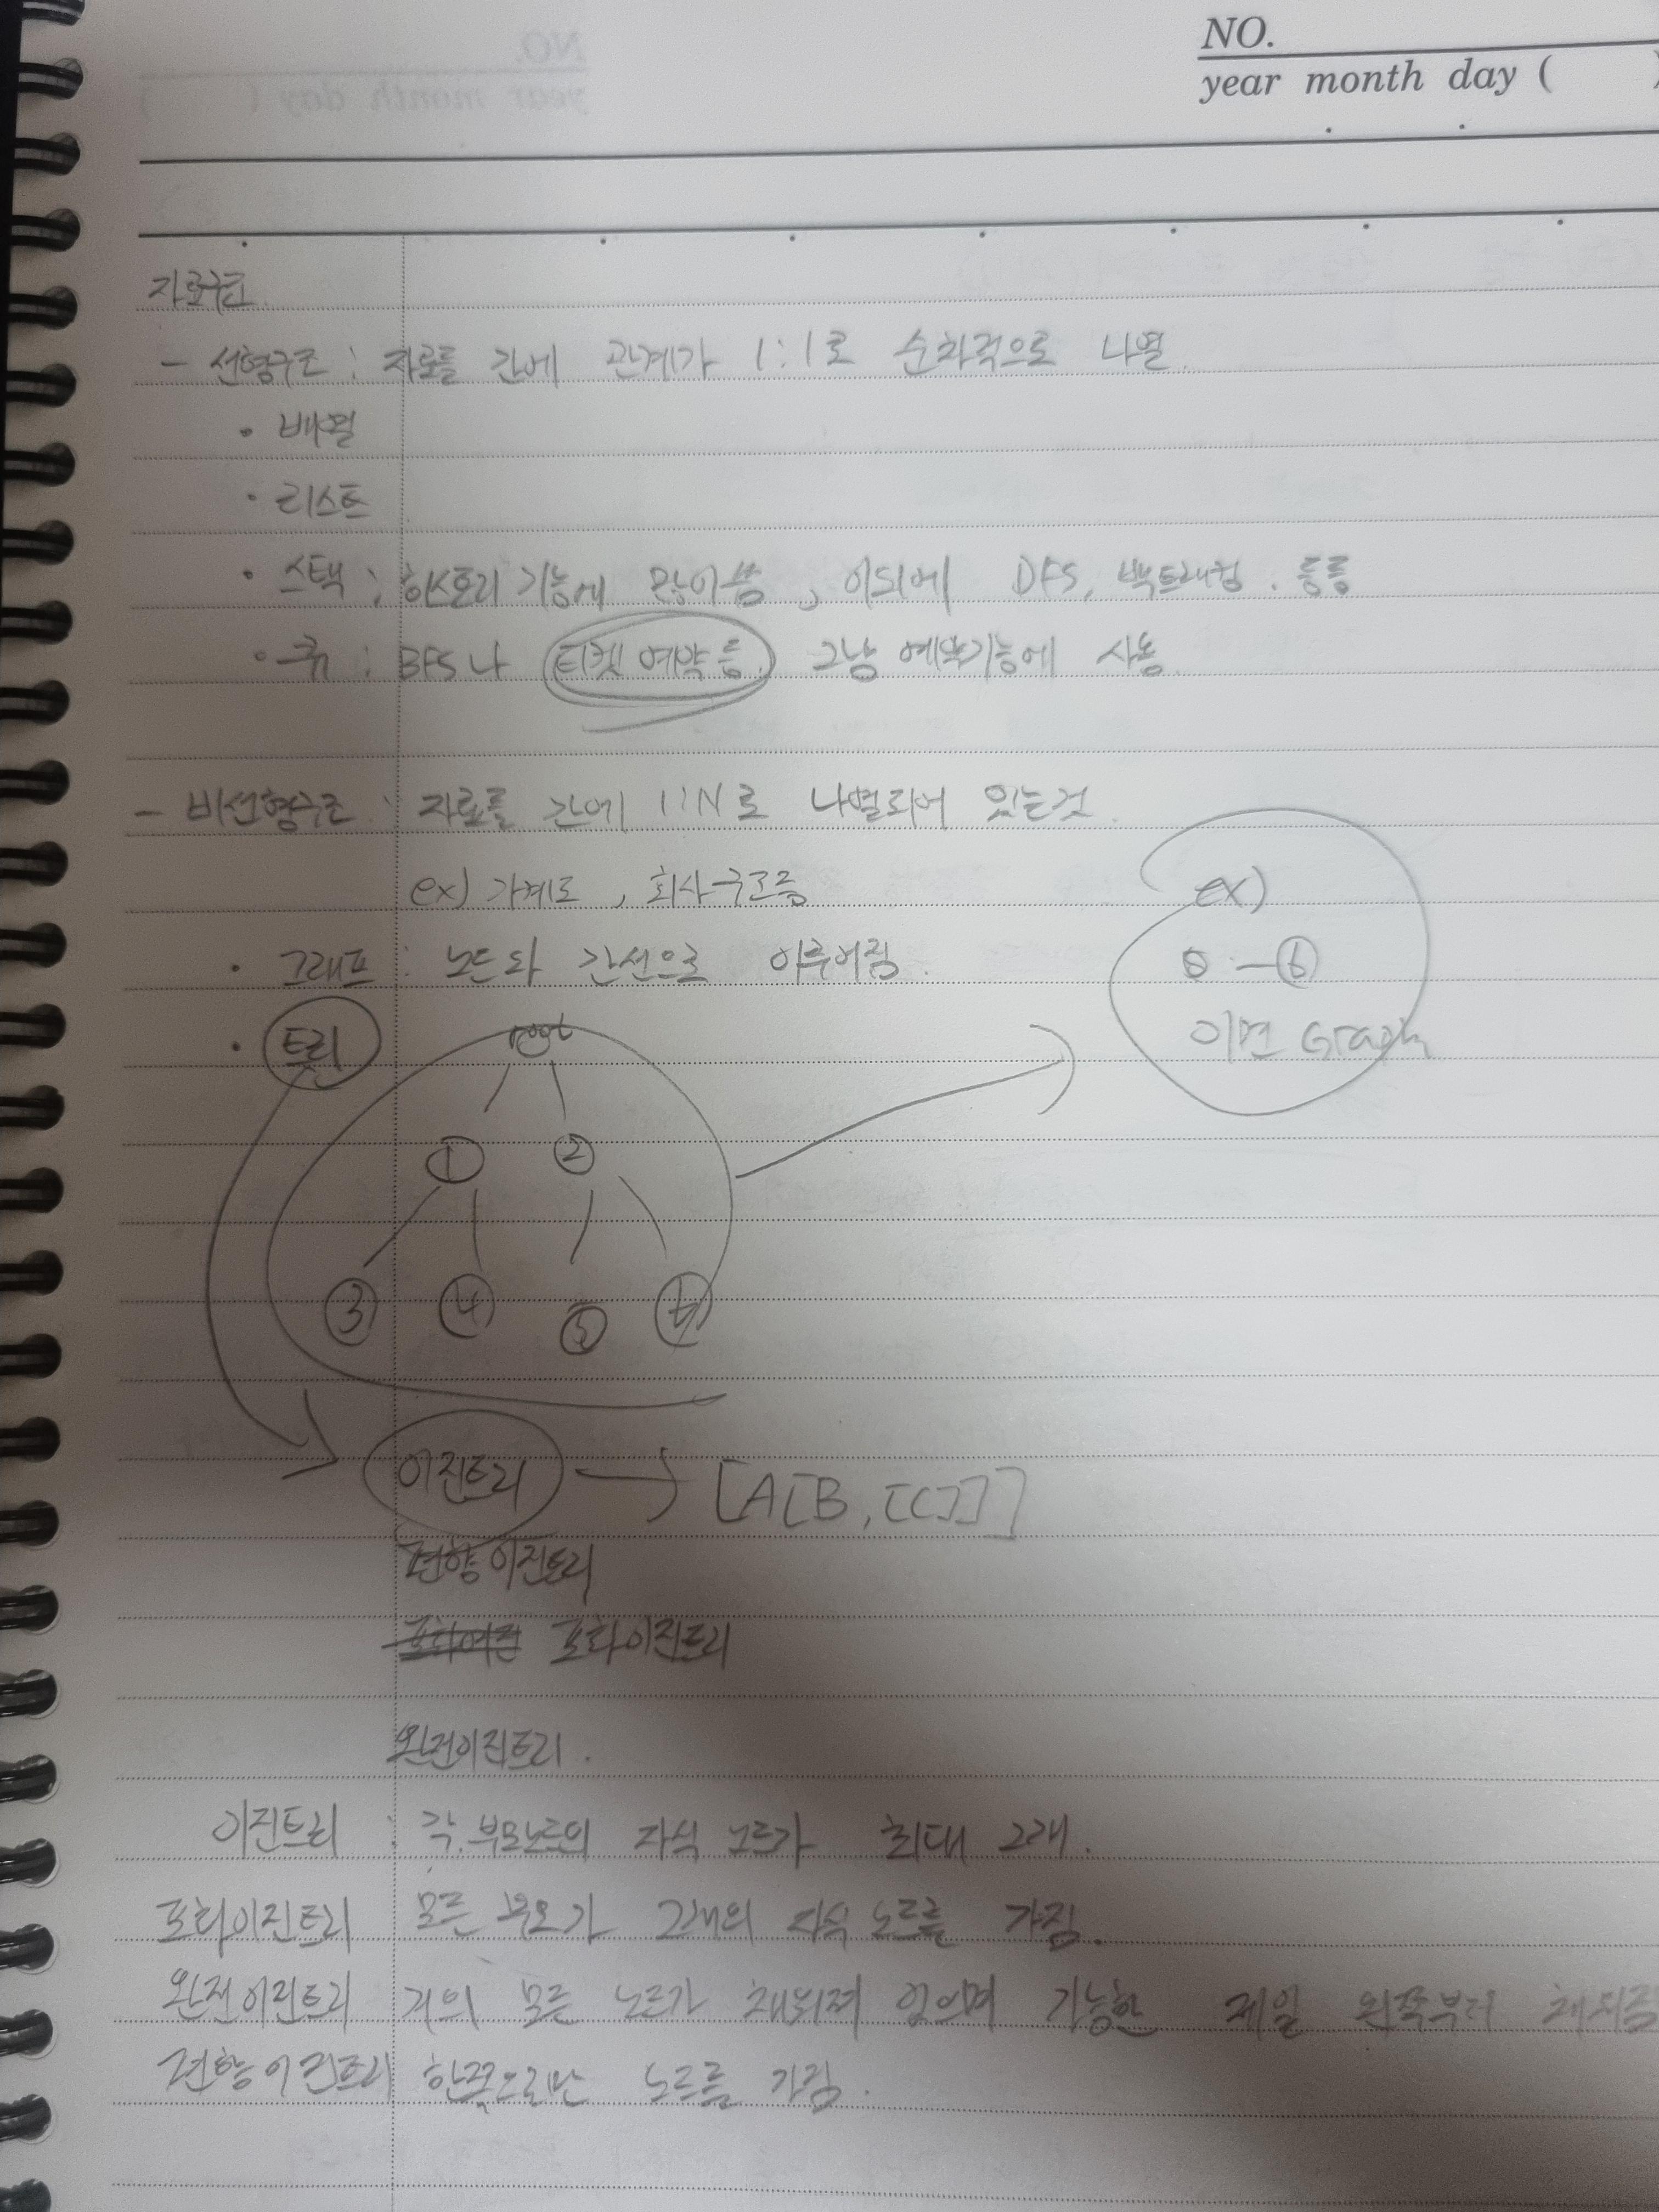 NO.
year month day ( )
자료구조
- 선형구조 : 자료들 간에 관계가 1:1로 순차적으로 나열.
· 배열
· 리스트
· 스택 : 히스토리 기능에 많이 씀, 이외에 DFS, 백트래킹. 등등
· 큐 : BFS나 티켓 예약 등. 그냥 예약기능에 사용.
- 비선형구조 : 자료들 간에 1:N로 나열되어 있는것.
ex) 가계도, 회사구조등
ex)
· 그래프 : 노드와 간선으로 이루어짐.
⑤ - ⑥
· 트리
root
이면 Graph
① ②
③ ④ ⑤
이진트리 → [A[B,[C]]]
편향이진트리
포화이진트리
완전이진트리.
이진트리 : 각 부모노드의 자식 노드가 최대 2개.
포화이진트리 모든 부모가 2개의 자식 노드를 가짐.
완전이진트리 거의 모든 노드가 채워져 있으며 가능한 제일 왼쪽부터 채워짐
편향이진트리 한쪽으로만 노드를 가짐.